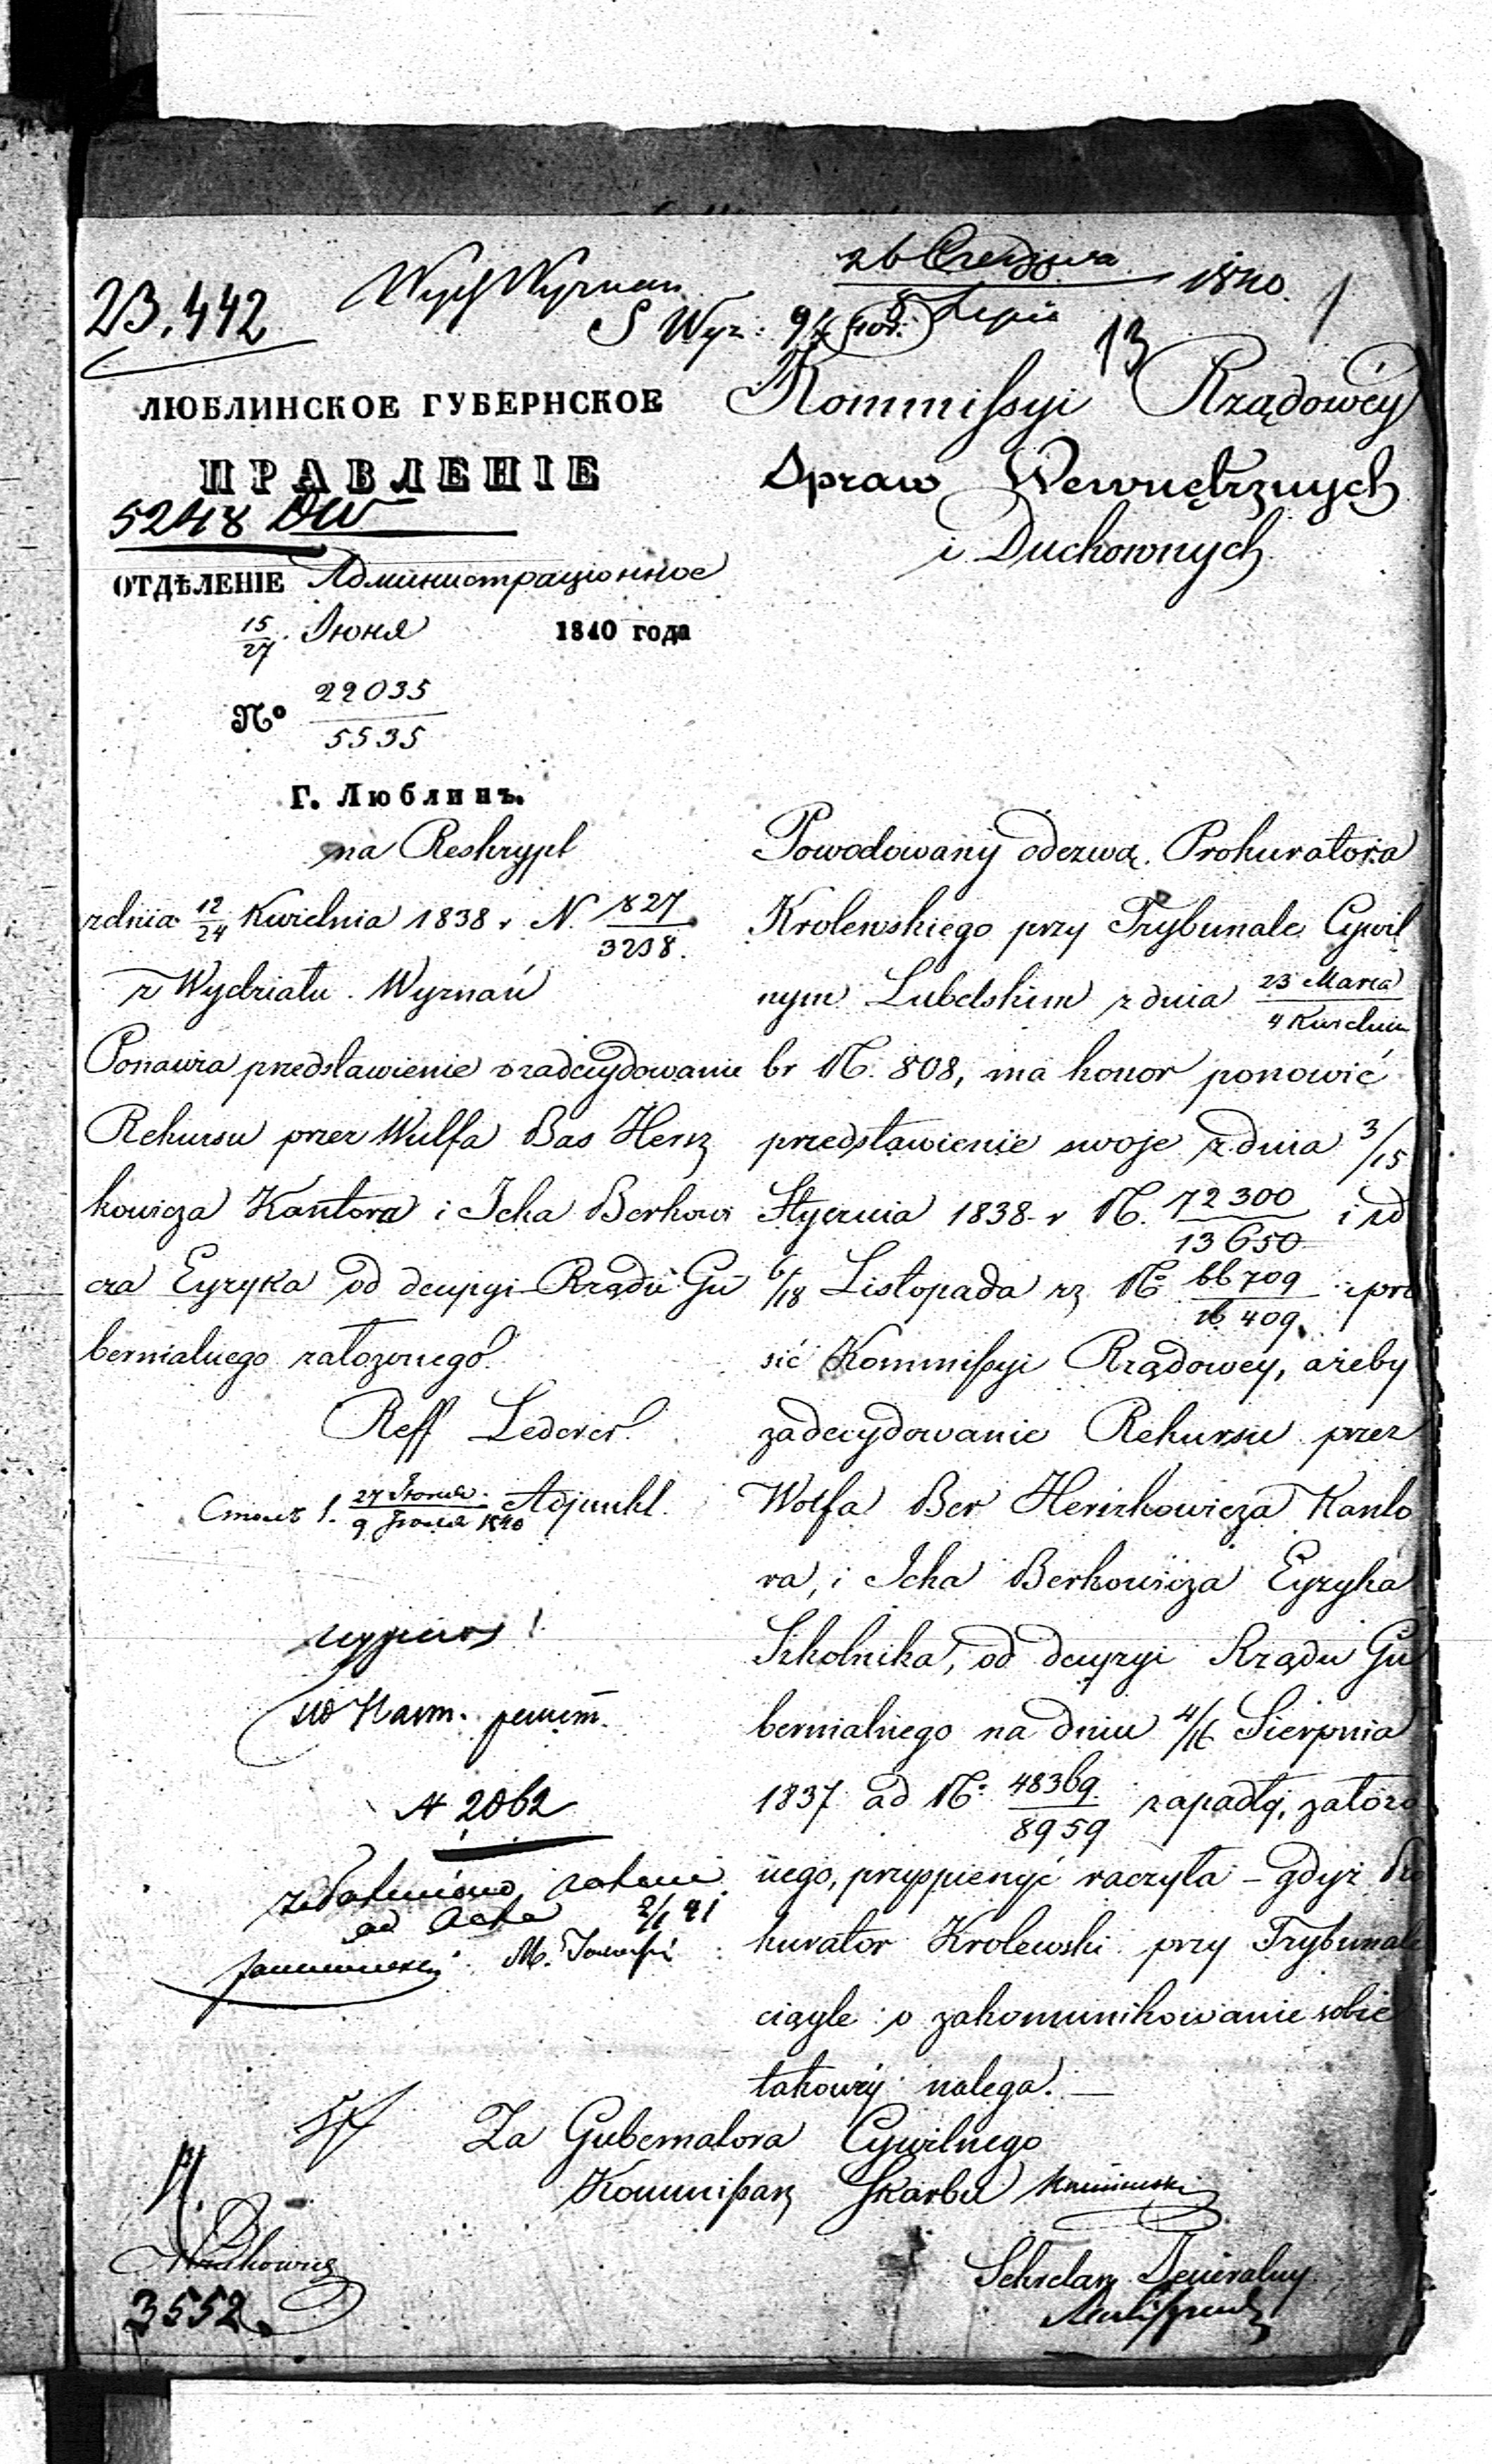 26 Czerwca
8 Lipca 1840.
23.442
Wydz Wyznan
S Wyz: 9/4
13
ЛЮБЛИНСКОЕ ГУБЕРНСКОЕ
ПРАВЛЕНІЕ
5248 DW
ОТДѢЛЕНІЕ Администраціонное
15/27 Июня 1840 года
№ 22035/5535
Г. Люблинъ.
na Reskrypt
zdnia 12/24 Kwietnia 1838 r N. 827/3238.
z Wydziału Wyznań
Ponawia przedstawienie o zadecydowanie
Rekursu przez Wulfa Bas Hersz
kowicza Kantora i Icka Berkowi
cza Eyzyka od decyzyi Rządu Gu
bernialnego założonego.
Reff Lederer
Столъ 1. 27 Июня/9 Июля 1840 Adjunkt.
N 2062
ad acta 2/1 41
Kommissyi Rządowéy
Spraw Wewnętrznych
i Duchownych
Powodowany odezwą Prokuratora
Krolewskiego przy Trybunale Cywil
nym Lubelskim z dnia 23 Marca/4 Kwietnia
br № 808, ma honor ponowić
przedstawienie swoje z dnia 3/15
Stycznia 1838 r № 72300/13650 i zd
6/18 Listopada rz № 66709/16409 i pro
sić Kommissyi Rządowey, ażeby
zadecydowanie Rekursu przez
Wolfa Ber Herszkowicza Kanto
ra, i Icka Berkowicza Eyzyka
Szkolnika, od decyzyi Rządu Gu
bernialnego na dniu 4/16 Sierpnia
1837 ad № 48369/8959 zapadłéj, założo
nego, przyspieszyć raczyła – gdyż Pro
kurator Krolewski przy Trybunale
ciągle o zakomunikowanie sobie
takowéy nalega. —
Za Gubernatora Cywilnego
Kommissarz Skarbu
Sekretarz Jeneralny
3552.